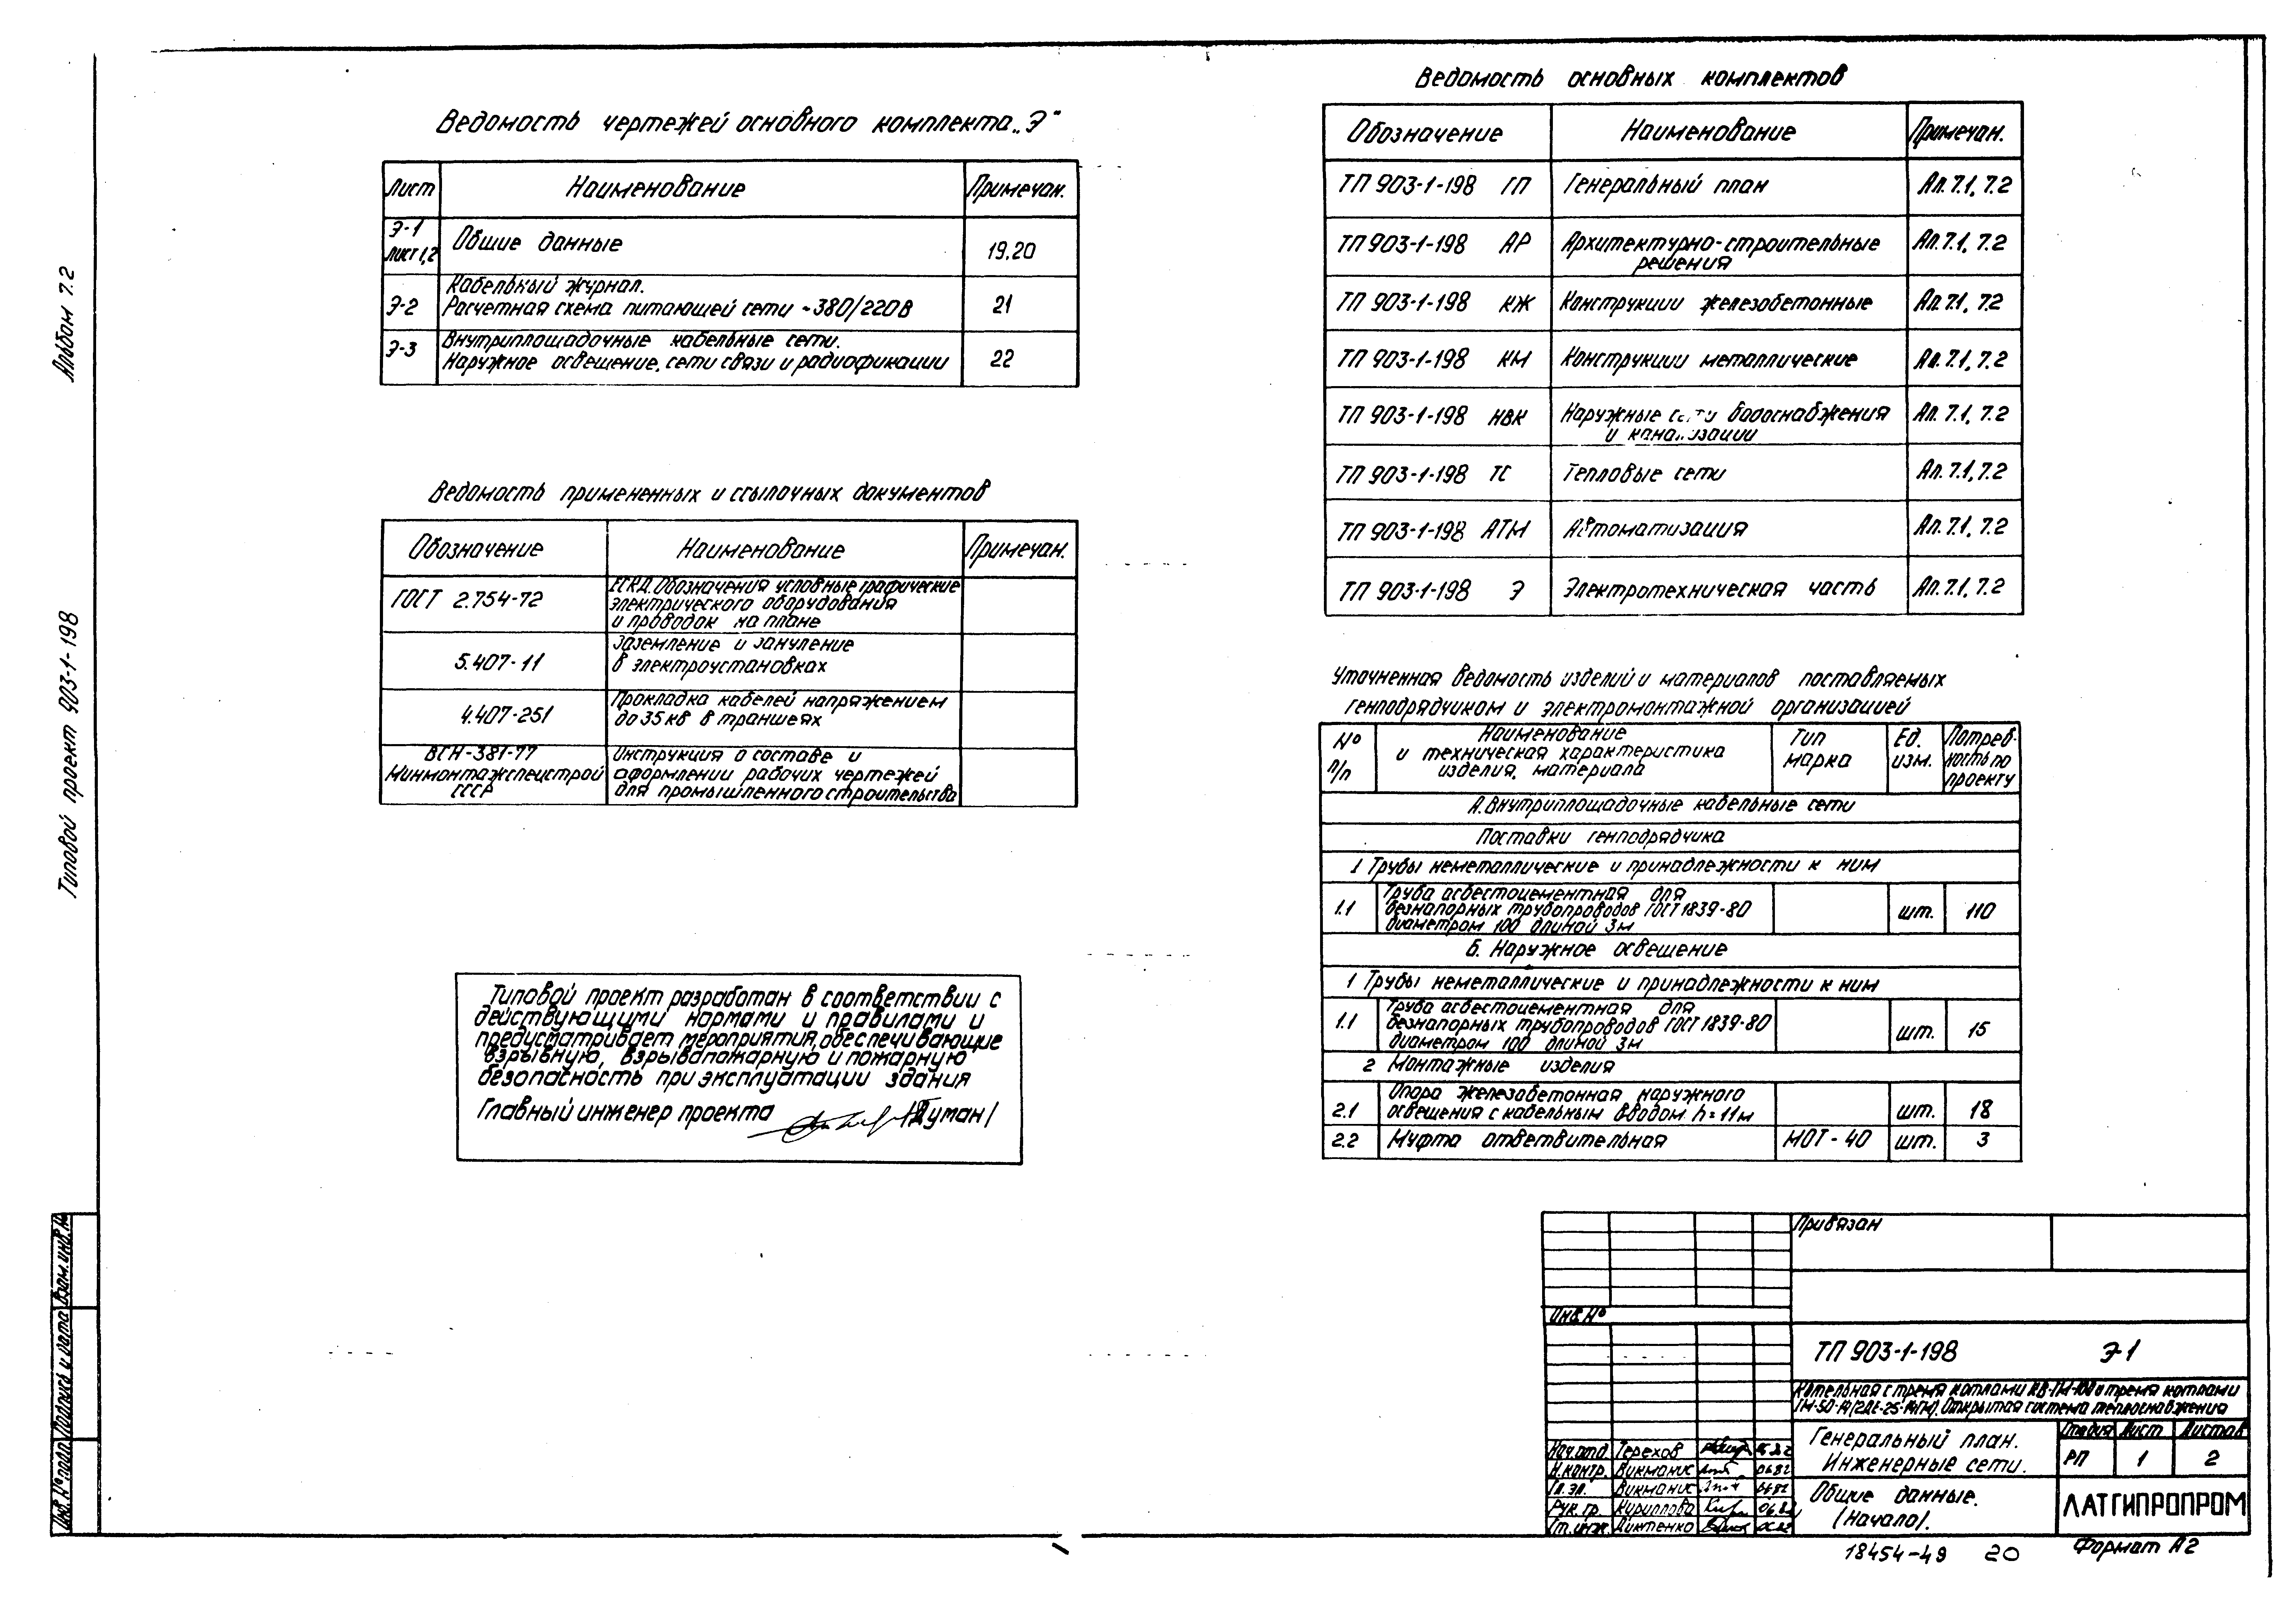 Альбом 7.2
Типовой проект 903-1-198
Ведомость чертежей основного комплекта „Э"
Лист Наименование Примечан.
Э-1 лист 1,2 Общие данные 19.20
Кабельный журнал.
Э-2 Расчетная схема питающей сети ~380/220В 21
Э-3 Внутриплощадочные кабельные сети.
Наружное освещение, сети связи и радиофикации 22
Ведомость примененных и ссылочных документов
Обозначение Наименование Примечан.
ГОСТ 2.754-72 ЕСКД. Обозначения условные графические
электрического оборудования
и проводок на плане
5.407-11 Заземление и зануление
в электроустановках
4.407-251 Прокладка кабелей напряжением
до 35 кв в траншеях
ВСН-381-77 Инструкция о составе и
Минмонтажспецстрой оформлении рабочих чертежей
СССР для промышленного строительства
Типовой проект разработан в соответствии с
действующими нормами и правилами и
предусматривает мероприятия, обеспечивающие
взрывную, взрывопожарную и пожарную
безопасность при эксплуатации здания
Главный инженер проекта /Думан/
Ведомость основных комплектов
Обозначение Наименование Примечан.
ТП 903-1-198 ГП Генеральный план Ал. 7.1, 7.2
ТП 903-1-198 АР Архитектурно-строительные Ал. 7.1, 7.2
решения
ТП 903-1-198 КЖ Конструкции железобетонные Ал. 7.1, 7.2
ТП 903-1-198 КМ Конструкции металлические Ал. 7.1, 7.2
ТП 903-1-198 НВК Наружные сети водоснабжения Ал. 7.1, 7.2
и канализации
ТП 903-1-198 ТС Тепловые сети Ал. 7.1, 7.2
ТП 903-1-198 АТМ Автоматизация Ал. 7.1, 7.2
ТП 903-1-198 Э Электротехническая часть Ал. 7.1, 7.2
Уточненная ведомость изделий и материалов поставляемых
генподрядчиком и электромонтажной организацией
№ п/п Наименование и техническая характеристика изделия, материала Тип марка Ед. изм. Потребность по проекту
А. Внутриплощадочные кабельные сети
Поставки генподрядчика
1 Трубы неметаллические и принадлежности к ним
1.1 Труба асбестоцементная для
безнапорных трубопроводов ГОСТ 1839-80 шт. 110
диаметром 100 длиной 3м
Б. Наружное освещение
1 Трубы неметаллические и принадлежности к ним
1.1 Труба асбестоцементная для
безнапорных трубопроводов ГОСТ 1839-80 шт. 15
диаметром 100 длиной 3м
2 Монтажные изделия
2.1 Опора железобетонная наружного
освещения с кабельным вводом h=11м шт. 18
2.2 Муфта ответвительная МОТ-40 шт. 3
Привязан
Инв. №
ТП 903-1-198 Э-1
Котельная с тремя котлами КВ-ГМ-100 и тремя котлами
ГМ-50-14/2ДЕ-25-14ГМ/. Открытая система теплоснабжения
Генеральный план.
Инженерные сети.
Стадия Лист Листов
РП 1 2
Общие данные.
/Начало/.
ЛАТГИПРОПРОМ
Нач. отд. Терехов
Н. контр. Викманис 06.82
Гл. эл. Викманис
Рук. гр. Кириллова 06.82
Ст. инж. Диктенко
Инв. № подл. Подпись и дата Взам. инв. №
18454-49 20
Формат А2